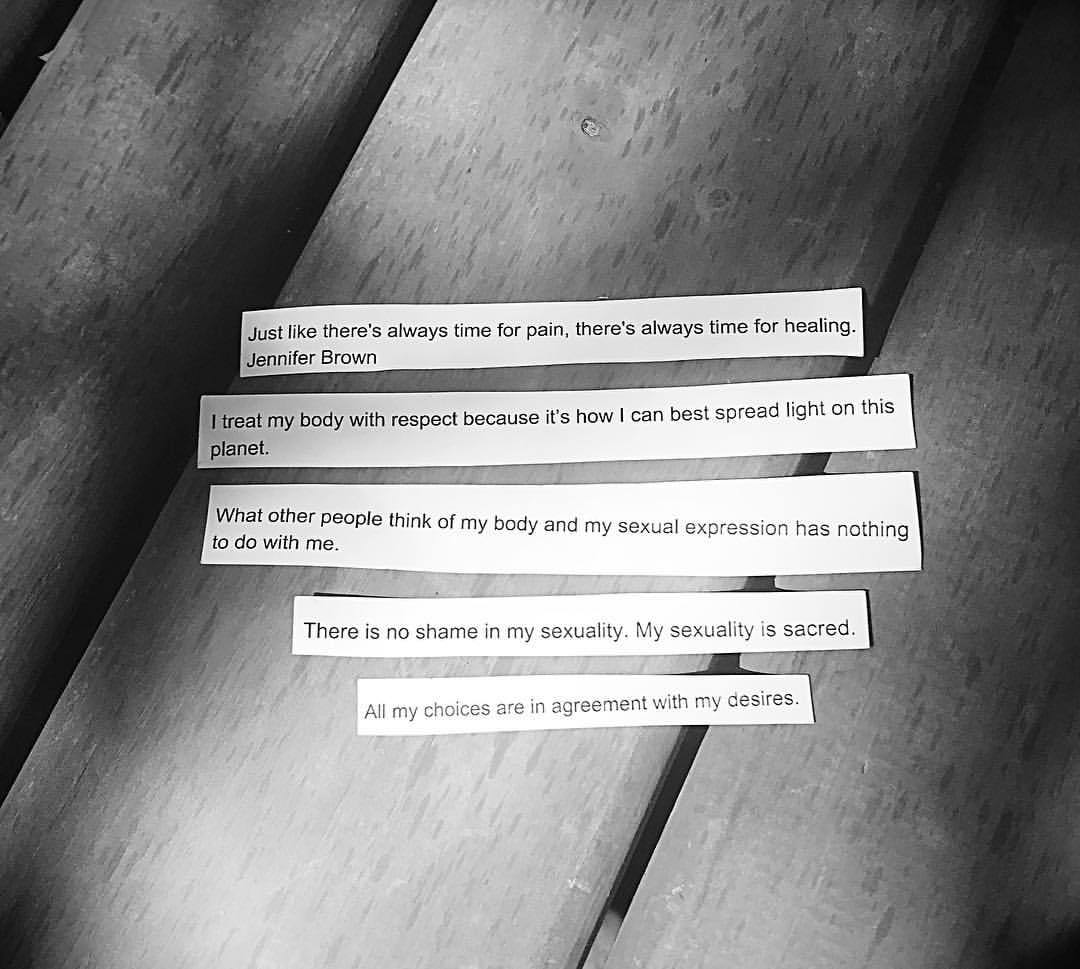 Just like there's always time for pain, there's always time for healing.
Jennifer Brown
I treat my body with respect because it's how I can best spread light on this
planet.
What other people think of my body and my sexual expression has nothing
to do with me.
There is no shame in my sexuality. My sexuality is sacred.
All my choices are in agreement with my desires.